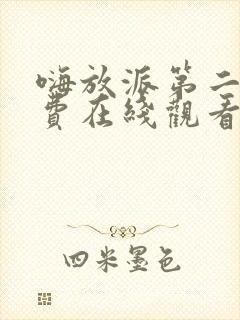 嗨放派第二
費在綫觀看
四米墨色